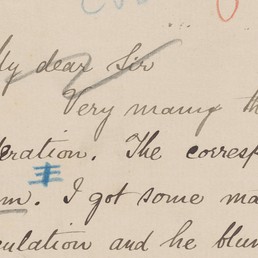 My dear Sir
Very many th
eration. The corresp
m. I got some ma
culation and he blun